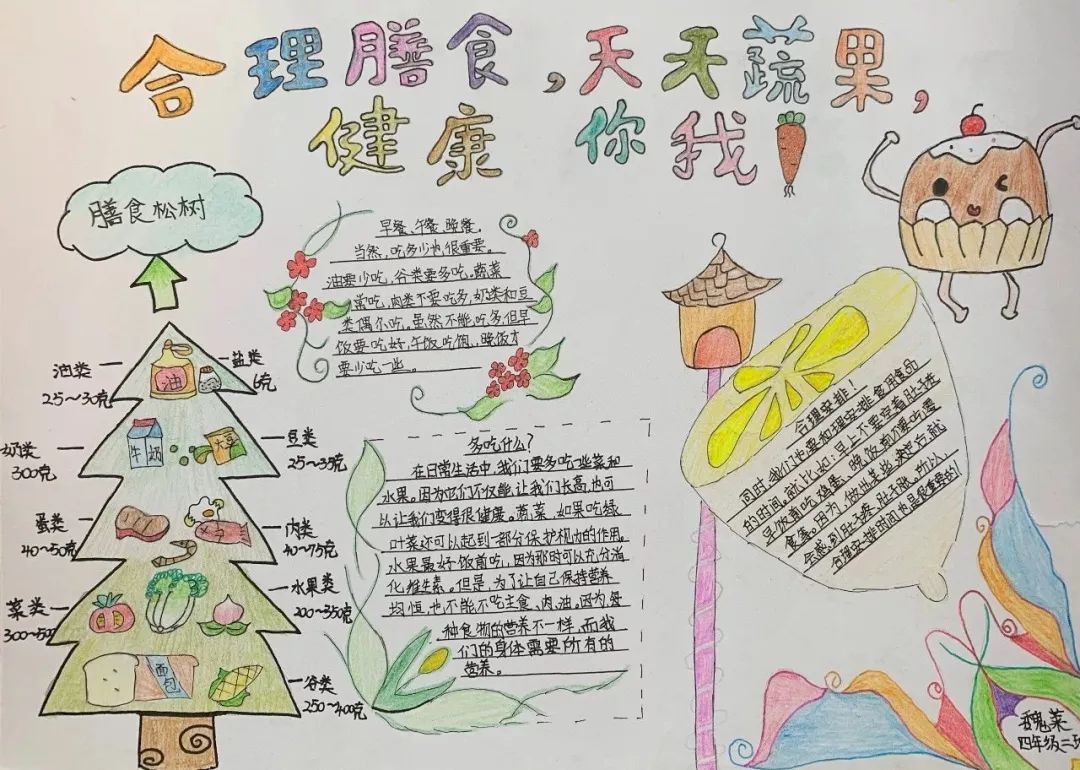 合理膳食,天天蔬果,
健康 你我
膳食松树
油类
25~30克
盐类
6克
油
奶类
300克
豆类
25~35克
牛奶
大豆
蛋类
40~50克
肉类
40~75克
菜类
300~50
水果类
200~350克
谷类
250~400克
面包
早餐、午餐、晚餐。
当然,吃多少也很重要。
油要少吃,谷类要多吃,蔬菜
常吃,肉类不要吃多,奶类和豆
类偶尔吃,虽然不能吃多但早
饭要吃好,午饭吃饱,晚饭才
要少吃一些。
多吃什么?
在日常生活中,我们要多吃些菜和
水果。因为它们不仅能让我们长高,也可
以让我们变得很健康。蔬菜,如果吃绿
叶菜还可以起到一部分保护视力的作用。
水果最好饭前吃,因为那时可以充分消
化维生素。但是,为了让自己保持营养
均恒,也不能不吃主食、肉、油,因为,每
种食物的营养不一样,而我
们的身体需要所有的
营养。
合理安排!
同时,我们也要合理安排食用食品
的时间。就比如:早上不要空着肚子进
会感到肚子疼、肚子胀。所以,
合理安排时间也是很重要的
魏菜
四年级二班